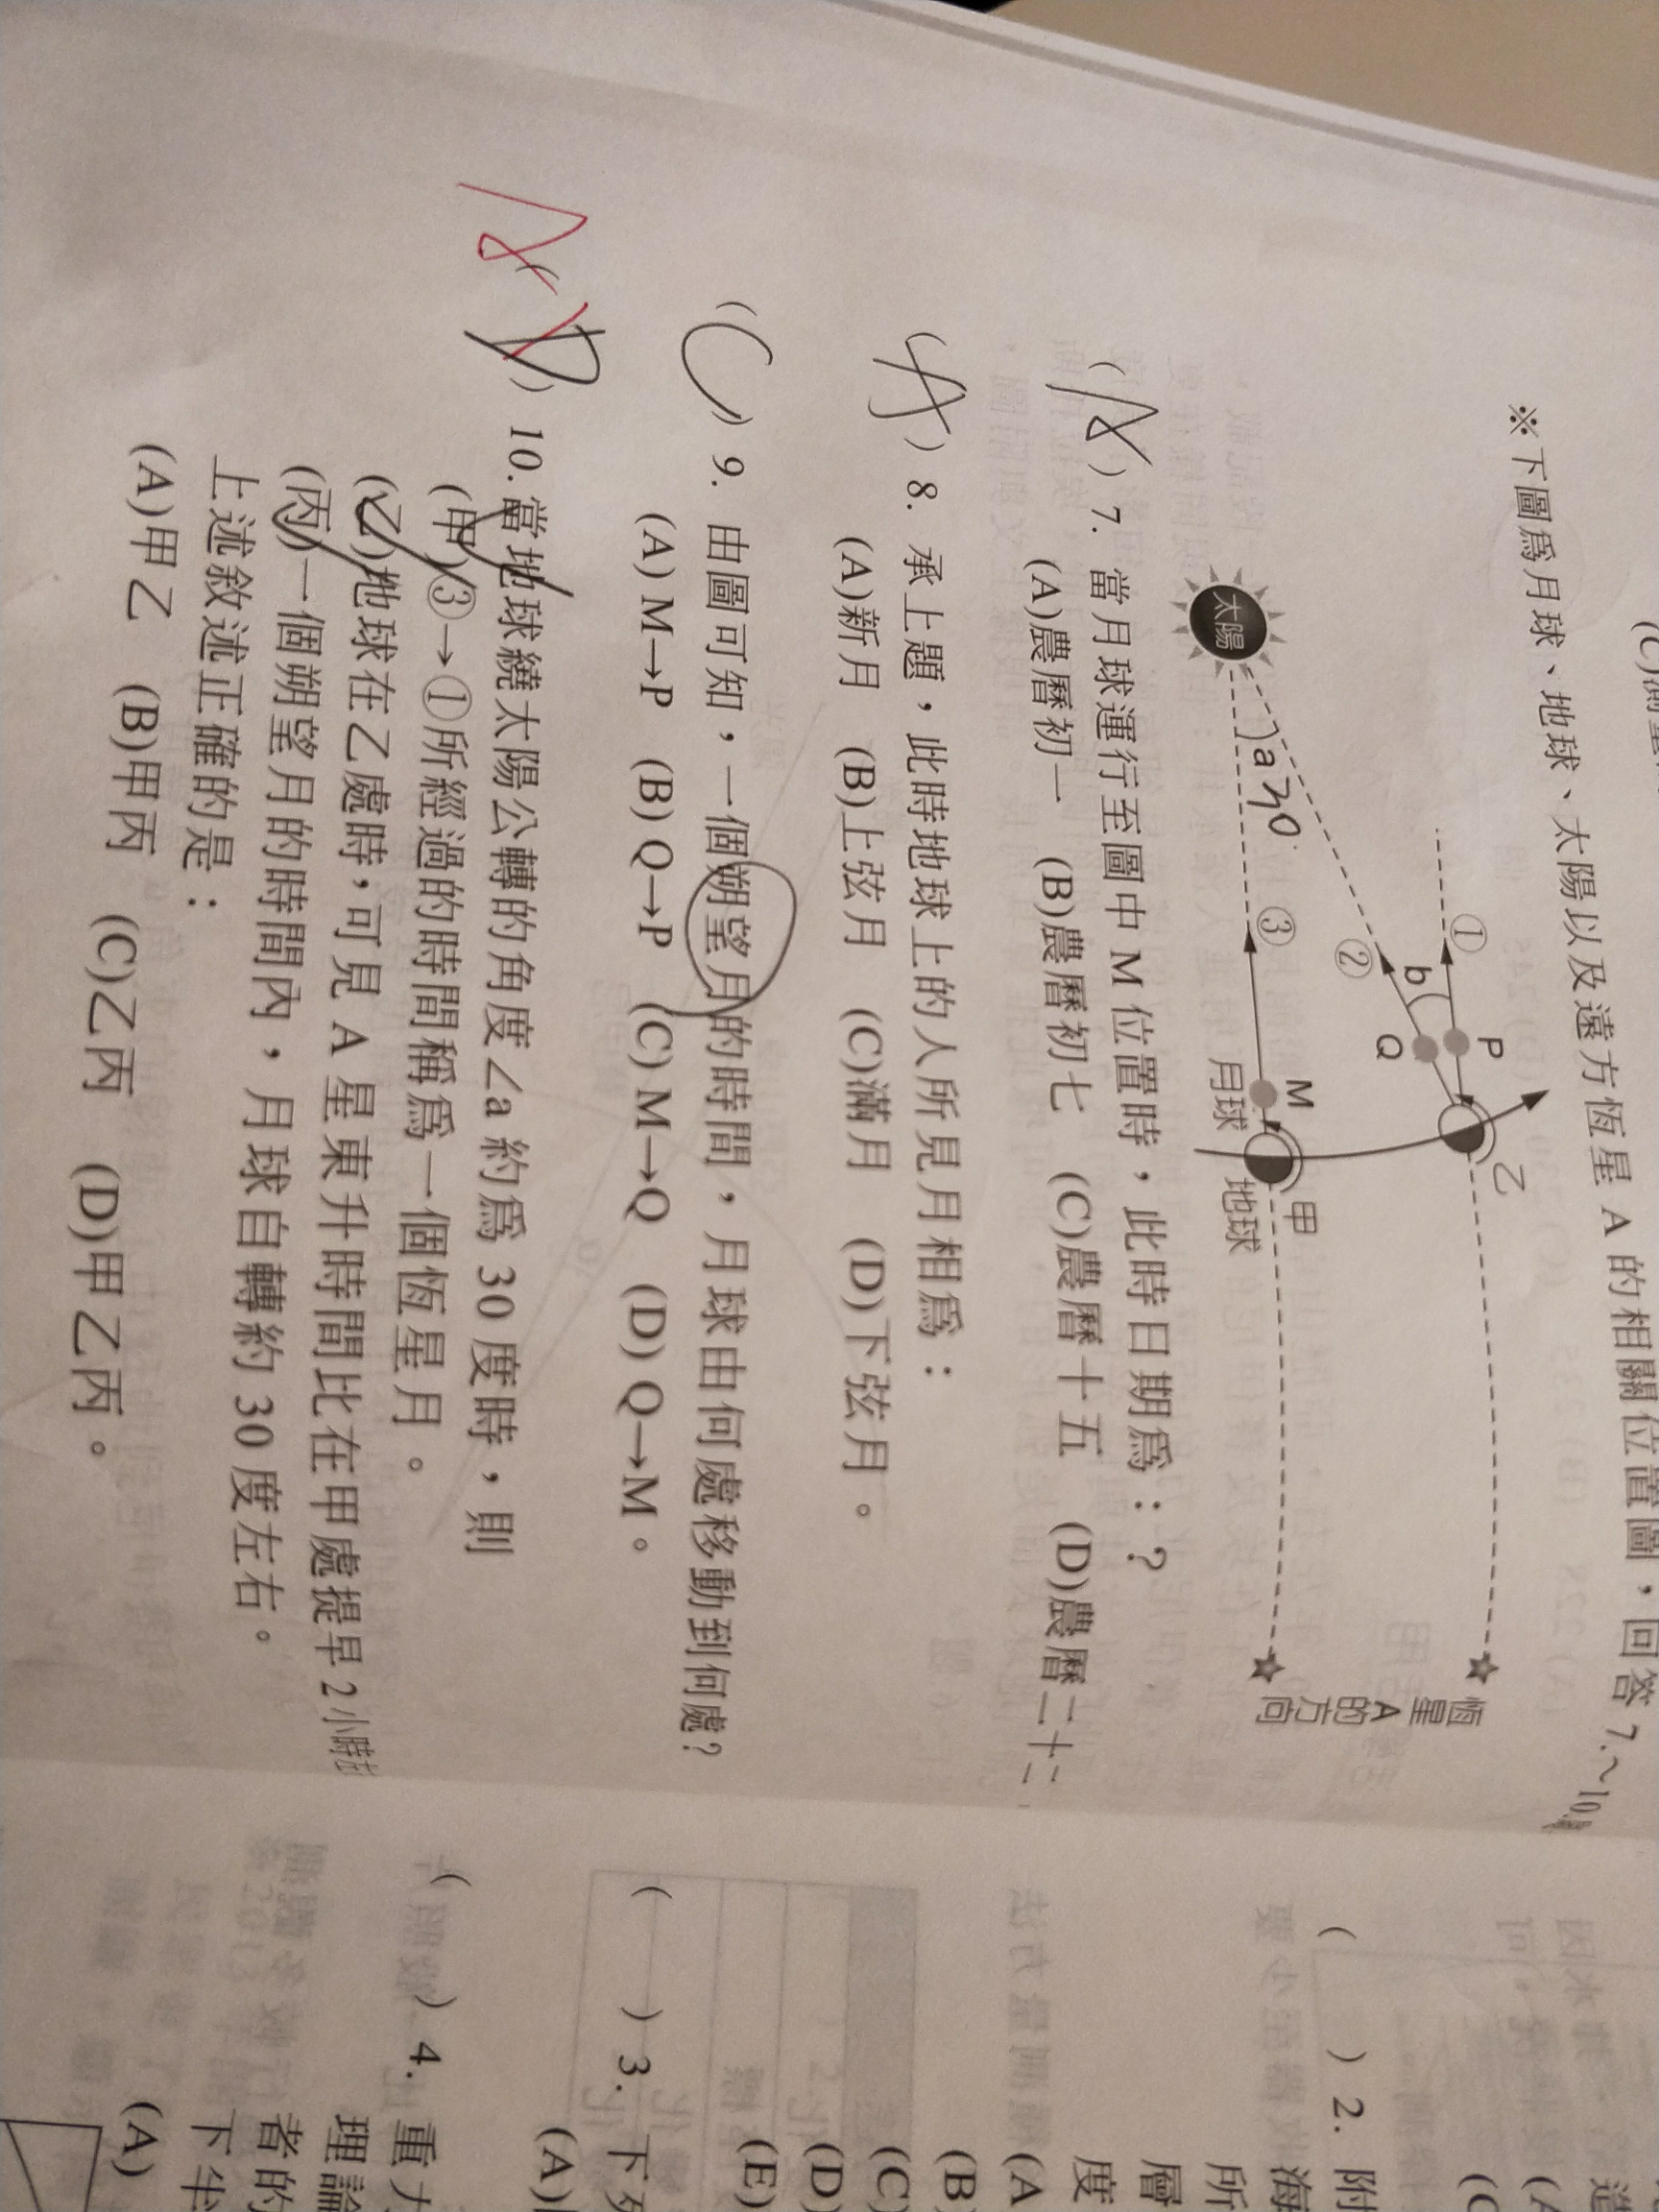 (C)測
※下圖為月球、地球、太陽以及遠方恆星 A 的相關位置圖，回答 7.～10.
① P 乙
b
② Q
恆星 A 的方向
太陽 a 30° ③ M 甲
月球 地球
(A) 7. 當月球運行至圖中 M 位置時，此時日期為：?
(A)農曆初一 (B)農曆初七 (C)農曆十五 (D)農曆二十二
(A) 8. 承上題，此時地球上的人所見月相為：
(A)新月 (B)上弦月 (C)滿月 (D)下弦月。
(C) 9. 由圖可知，一個朔望月的時間，月球由何處移動到何處?
(A) M→P (B) Q→P (C) M→Q (D) Q→M。
(D) 10. 當地球繞太陽公轉的角度∠a 約為 30 度時，則
(甲)③→①所經過的時間稱為一個恆星月。
(乙)地球在乙處時，可見 A 星東升時間比在甲處提早 2 小時
(丙)一個朔望月的時間內，月球自轉約 30 度左右。
上述敘述正確的是：
(A)甲乙 (B)甲丙 (C)乙丙 (D)甲乙丙。
( ) 2. 附
海
所
層
度
(A
(B)
(C)
(D)
(E)
( ) 3. 下列
(A)
( ) 4. 重力
理論
者的
下半
(A)